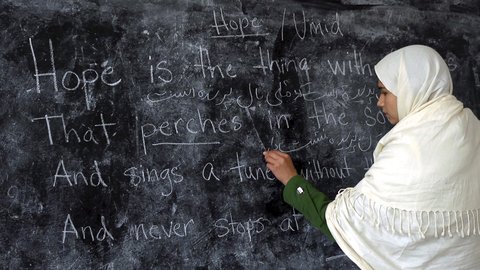 Hope / Umid
Hope is the thing with
That perches in the so
And sings a tune without
And never stops at